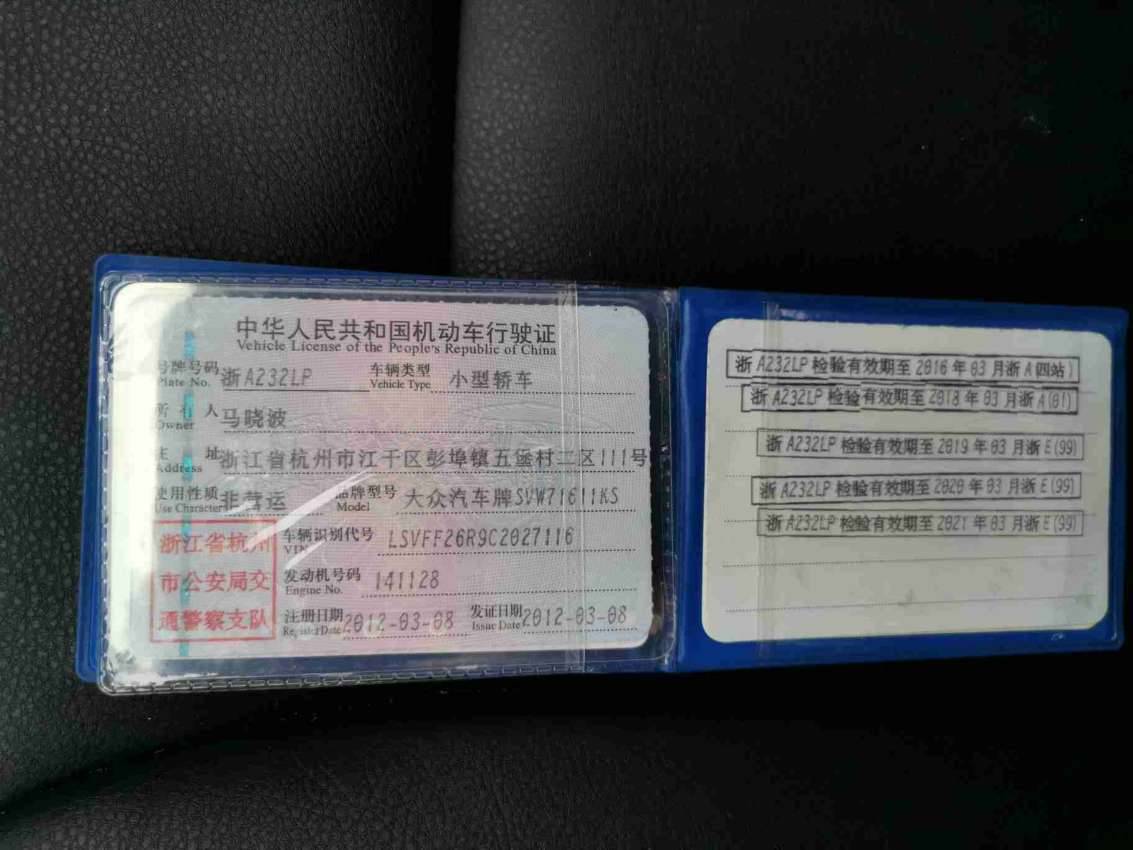 中华人民共和国机动车行驶证
Vehicle License of the People's Republic of China
号牌号码 浙A232LP 车辆类型 小型轿车
Plate No. Vehicle Type
所有人 马晓波
Owner
住址 浙江省杭州市江干区彭埠镇五堡村二区111号
Address
使用性质 非营运 品牌型号 大众汽车牌SVW71611KS
Use Character Model
车辆识别代号 LSVFF26R9C2027116
VIN
发动机号码 141128
Engine No.
注册日期 2012-03-08 发证日期 2012-03-08
Register Date Issue Date
浙江省杭州
市公安局交
通警察支队
浙A232LP 检验有效期至 2016 年 03 月浙A四站)
浙A232LP 检验有效期至 2018 年 03 月浙A(01)
浙A232LP 检验有效期至 2019 年 03 月浙E(99)
浙A232LP 检验有效期至 2020 年 03 月浙E(99)
浙A232LP 检验有效期至 2021 年 03 月浙E(99)